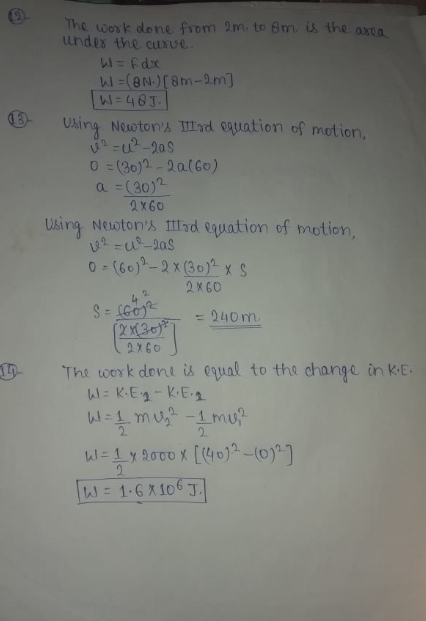 (12) The work done from 2m. to 8m. is the area
under the curve.
W = F.dx
W = (8N.)[8m-2m]
W = 48J.
(13) Using Newton's IIIrd equation of motion,
v² = u² - 2aS
0 = (30)² - 2a(60)
a = (30)²
2x60
Using Newton's IIIrd equation of motion,
v² = u² - 2aS
0 = (60)² - 2 x (30)² x S
2x60
S = (60)² = 240m
[2x(30)²
2x60]
(14) The work done is equal to the change in K.E.
W = K.E₂ - K.E₁
W = 1/2 mv₂² - 1/2 mv₁²
W = 1/2 x 2000 x [(40)² - (0)²]
W = 1.6 x 10⁶ J.